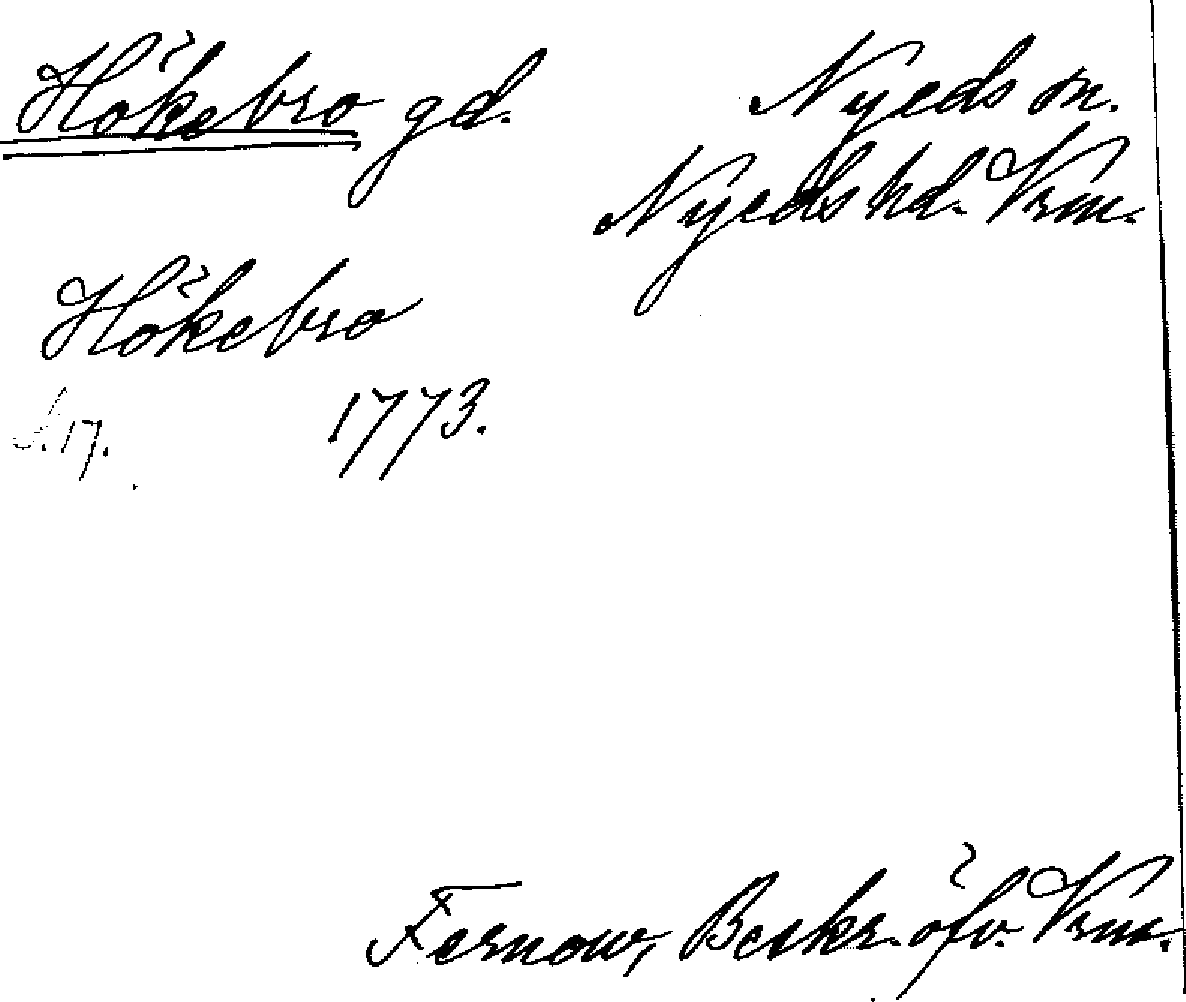 Hökebro gd. Nyeds sn.
Nyeds hd. Vrm.
Hökebro
S. 17. 1773.
Fernow, Beskr. öfv. Vrm.